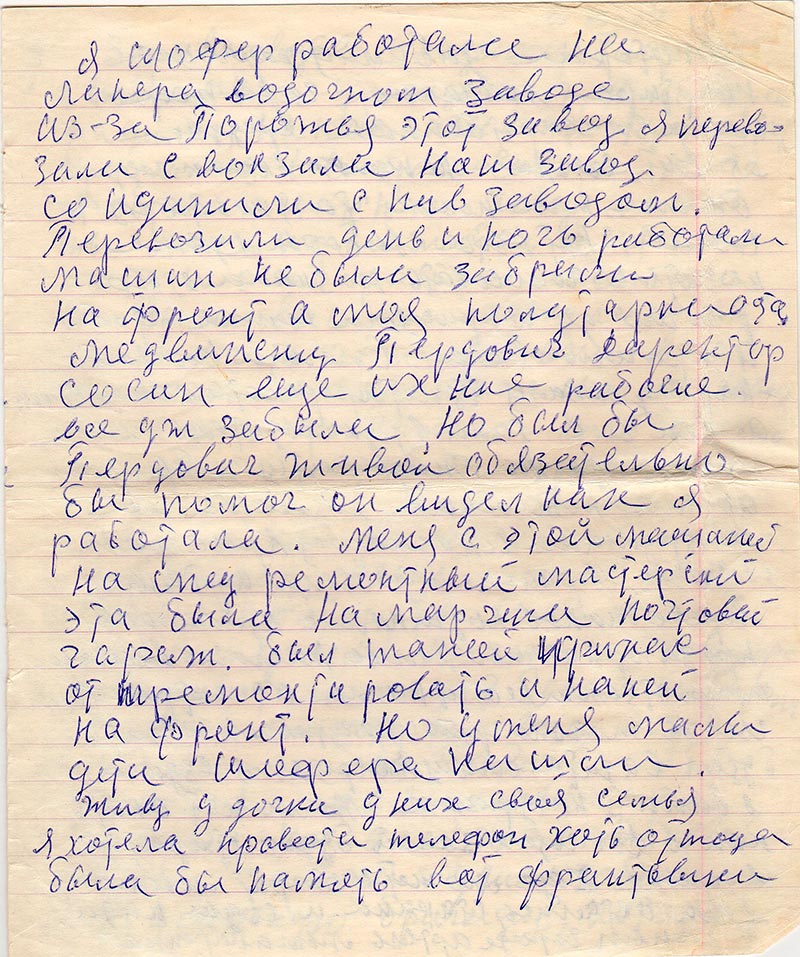 я шофер работала на
ликера водочном заводе
из-за Порожья этот завод я перево-
зали с вокзала наш завод
со идинили с пив заводом.
Перевозили день и ночь работали
машин не были забрали
на фронт а моя полутарка
Пердович директор
еще их
все уж забыла но был бы
Пердович живой обязательно
бы помог он видел как я
работала. меня с этой машиней
на ремонтный мастерской
эта была почтовай
гараж. был такей приказ
от ремонтировать и на ней
на фронт. но у меня малы
дети шофера нашли.
живу у дочки у них своя семья
я хотела провести телефон хоть от отца
была бы память вот фронтовики